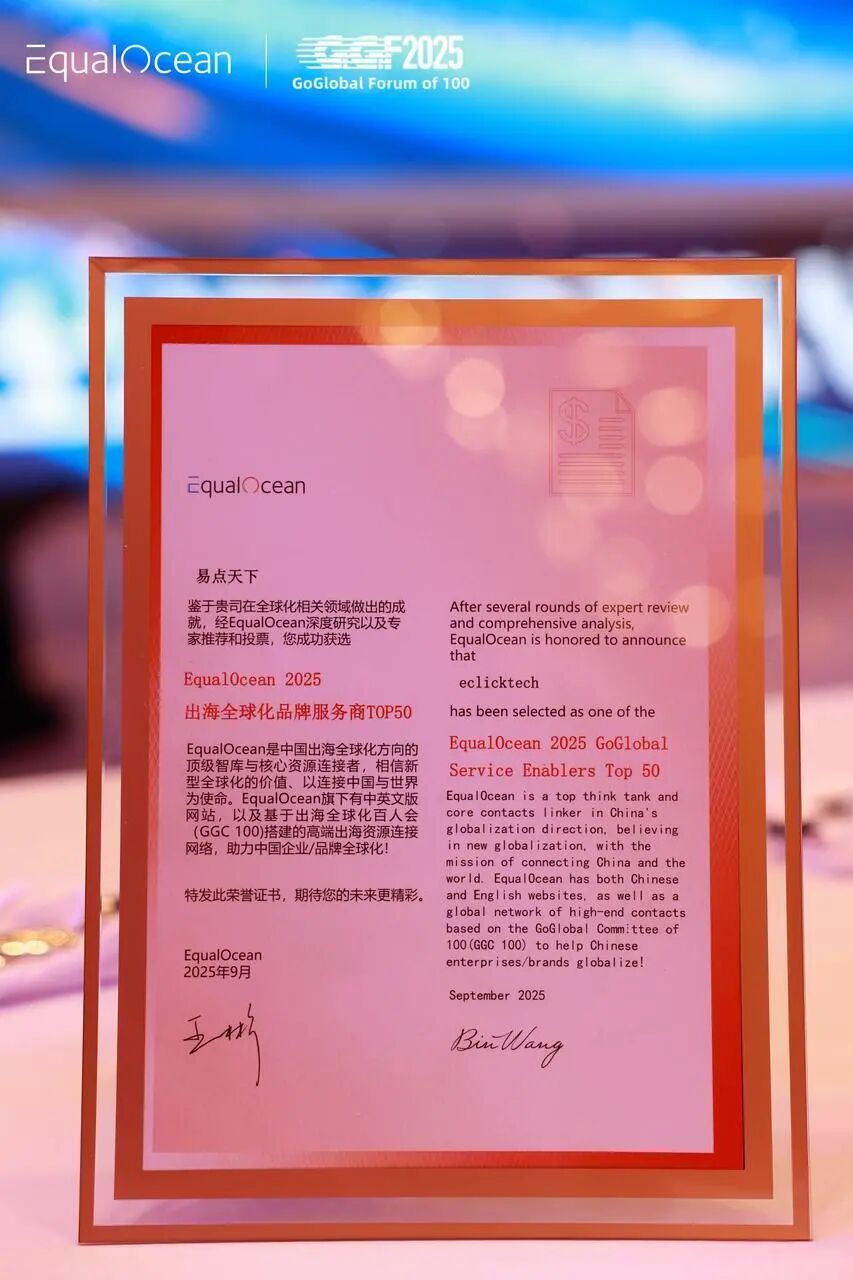 EqualOcean
GGF2025
GoGlobal Forum of 100
EqualOcean
易点天下
鉴于贵司在全球化相关领域做出的成
就，经EqualOcean深度研究以及专
家推荐和投票，您成功获选
EqualOcean 2025
出海全球化品牌服务商TOP50
EqualOcean是中国出海全球化方向的
顶级智库与核心资源连接者，相信新
型全球化的价值、以连接中国与世界
为使命。EqualOcean旗下有中英文版
网站，以及基于出海全球化百人会
（GGC 100)搭建的高端出海资源连接
网络，助力中国企业/品牌全球化！
特发此荣誉证书，期待您的未来更精彩。
EqualOcean
2025年9月
王彬
After several rounds of expert review
and comprehensive analysis,
EqualOcean is honored to announce
that
eclicktech
has been selected as one of the
EqualOcean 2025 GoGlobal
Service Enablers Top 50
EqualOcean is a top think tank and
core contacts linker in China's
globalization direction, believing
in new globalization, with the
mission of connecting China and the
world. EqualOcean has both Chinese
and English websites, as well as a
global network of high-end contacts
based on the GoGlobal Committee of
100(GGC 100) to help Chinese
enterprises/brands globalize!
September 2025
Bin Wang